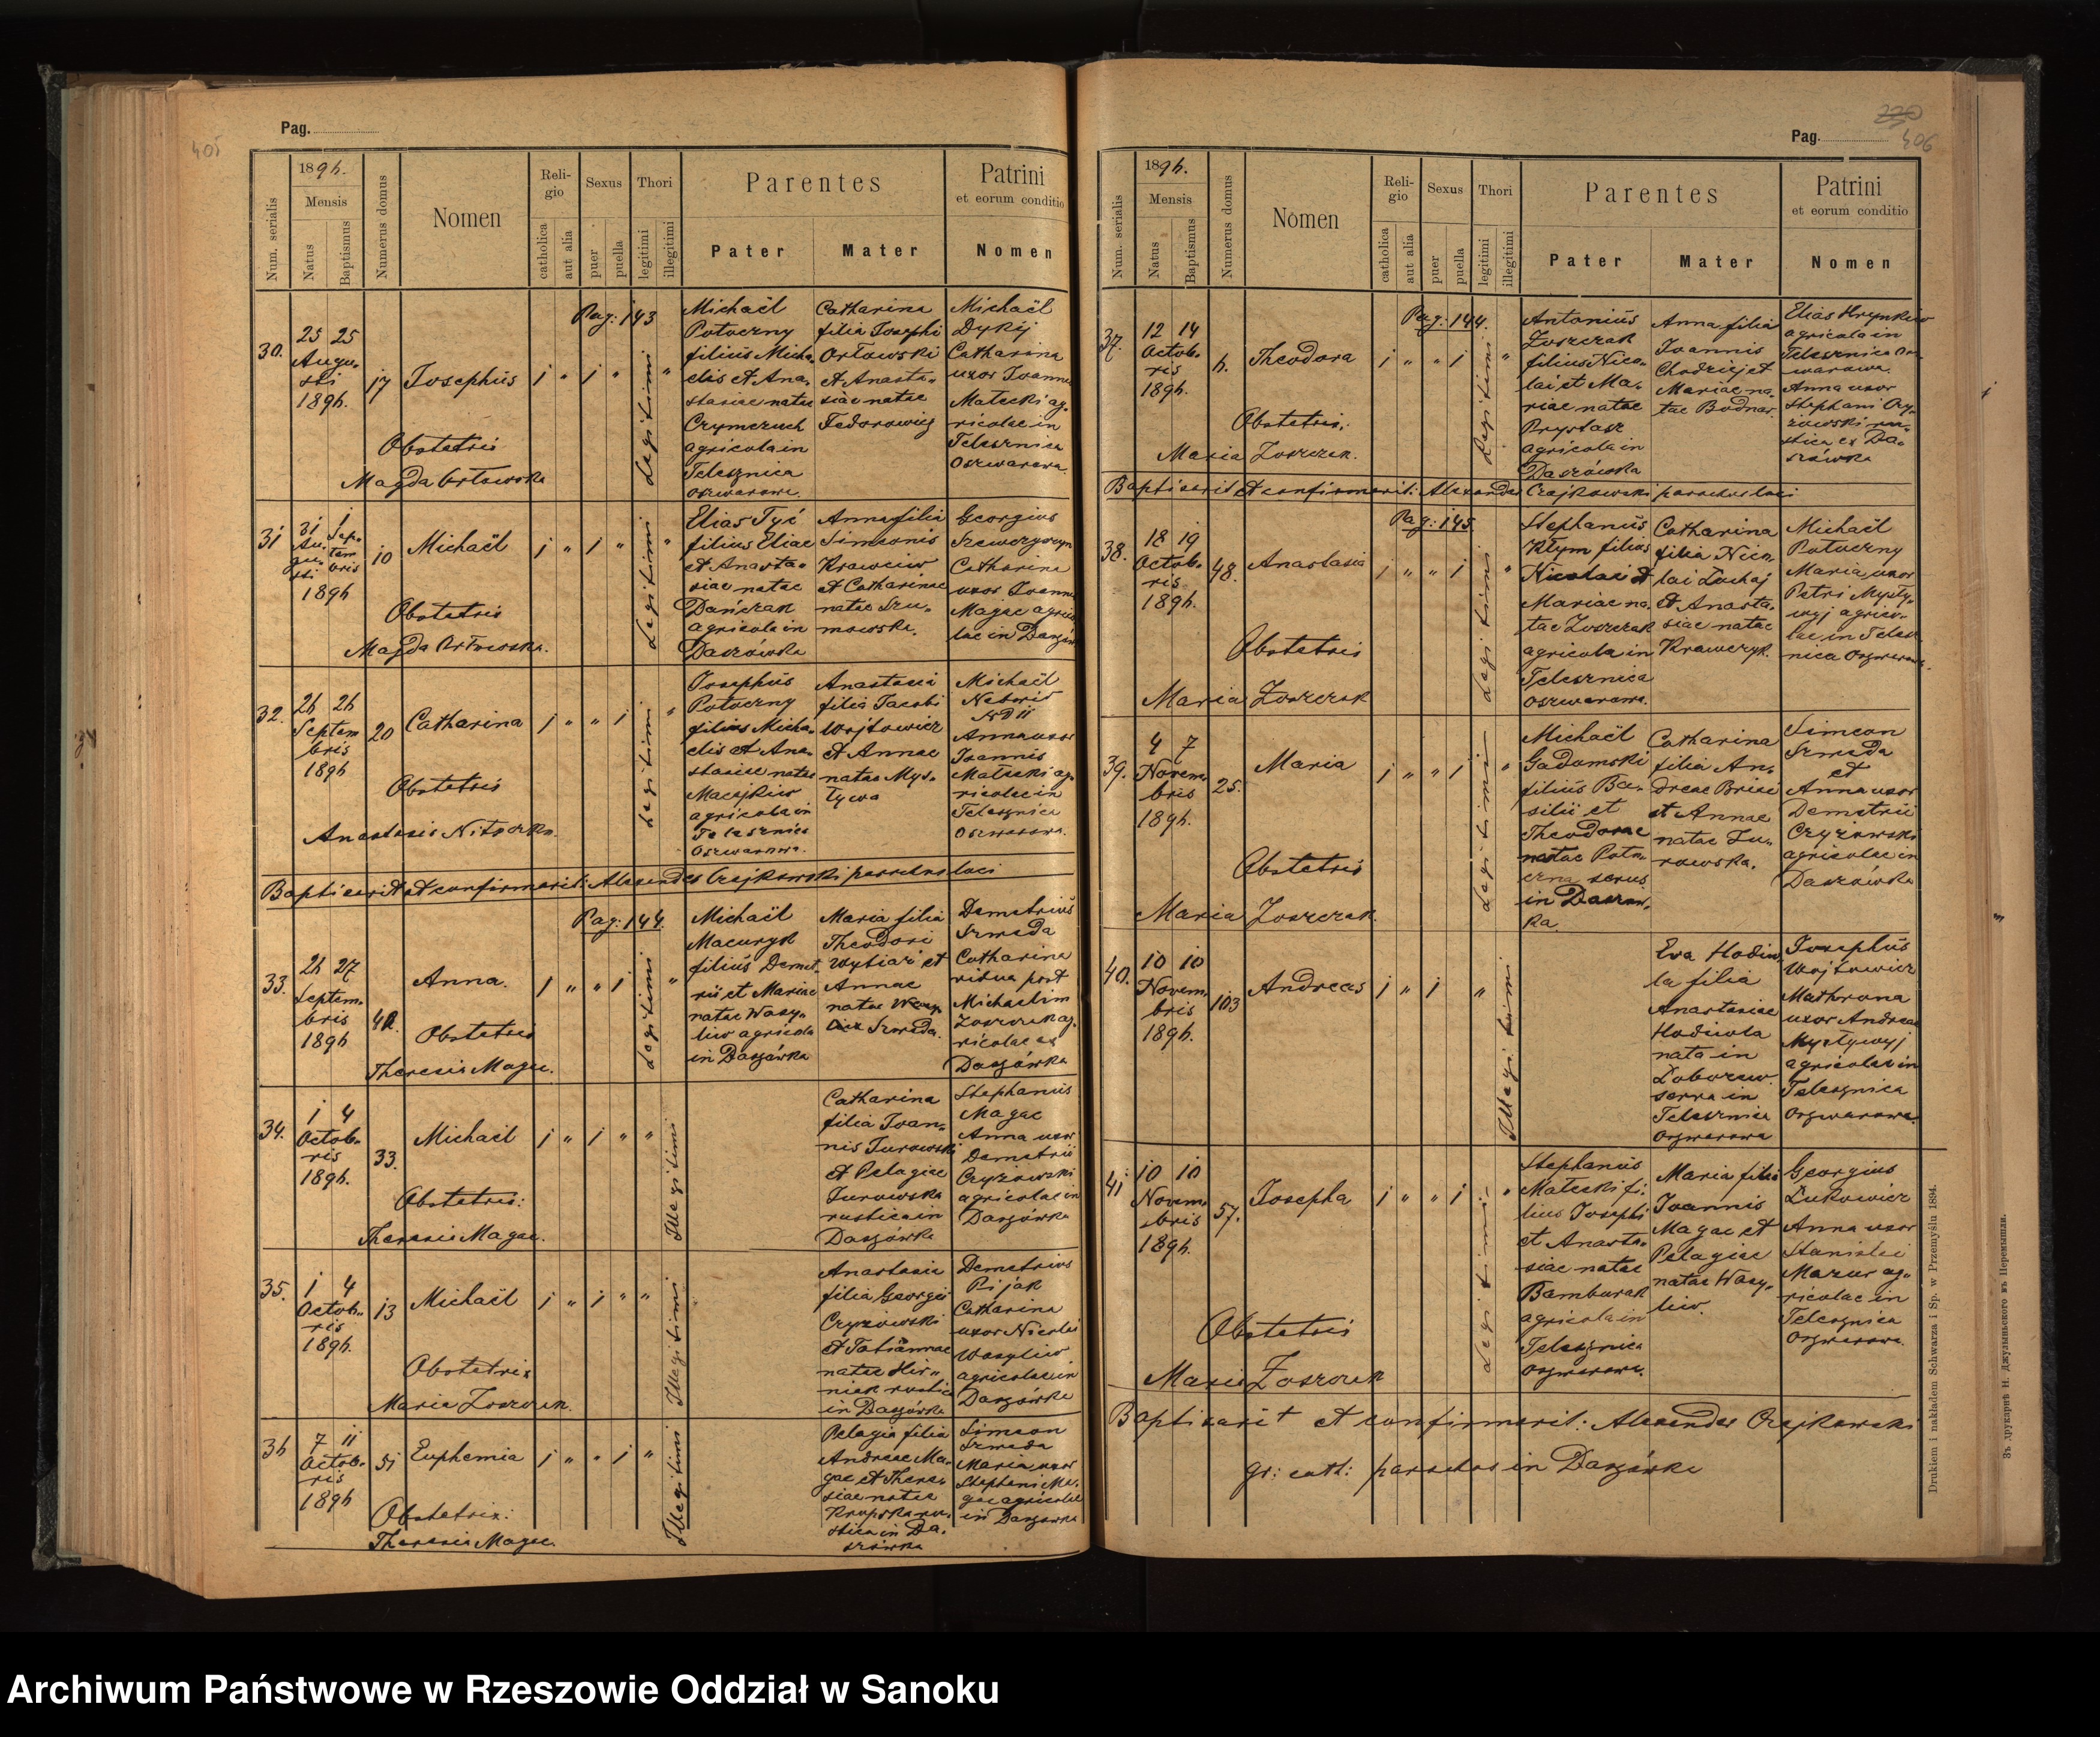 405
Pag.
Num. serialis
1896.
Mensis
Natus
Baptismus
Numerus domus
Nomen
Reli-
gio
catholica
aut alia
Sexus
puer
puella
Thori
legitimi
illegitimi
Parentes
Pater
Mater
Patrini
et eorum conditio
Nomen
Pag: 143
30.
25 25
Augu-
sti
1896.
17
Josephus
Legitimi
Obstetrix
Magda Orłowska
Michaël
Potoczny
filius Micha-
elis et Ana-
stasiae natae
agricola in
Telesznica
Oszwarowa.
Catharina
filia Josephi
Orłowski
et Anasta-
siae natae
Fedorowicz
Michaël
Dykij
Catharina
uxor Joannis
Małecki ag-
ricolae in
Telesznica
Oszwarowa.
31
31 1
1896
10
Michaël
Legitimi
Obstetrix
Magda Orłowska.
Elias Tyć
filius Eliae
et Anasta-
siae natae
Dańczak
agricola in
Daszówka
Anna filia
Simeonis
Krawciw
et Catharinae
natae Szu-
mowska.
Georgius
Catharina
uxor Joannis
Magac agrico-
lae in Daszówka
32.
26 26
Septem
bris
1896
20
Catharina
Legitimi
Obstetrix
Josephus
Potoczny
filius Micha-
elis et Ana-
stasiae natae
Maciejkiw
agricola in
Telesznica
Oszwarowa.
Anastasia
filia Jacobi
Wojtowicz
et Annae
natae Mys-
tywa
Michaël
Anna uxor
Joannis
Małecki ag-
ricolae in
Telesznica
Oszwarowa.
Baptisavit et confirmavit: Alexander Czajkowski parochus loci
Pag: 144.
33.
26 27
Septem-
bris
1896
Anna.
Legitimi
Obstetrix
Theresia Magac.
Michaël
filius Demet-
rii et Mariae
natae Wasy-
liw agricola
in Daszówka
Maria filia
Theodori
et
Annae
natae
Szweda.
Demetrius
Szweda
Catharina
vidua post
Michaelim
Zoszczak ag-
ricolae ex
Daszówka
34.
1 4
Octob-
ris
1896.
33.
Michaël
Illegitimi
Obstetrix:
Theresia Magac.
Catharina
filia Joan-
nis Turowski
et Pelagiae
Turowska
rustica in
Daszówka
Stephanus
Magac
Anna uxor
Demetrii
Czyżowski
agricolae in
Daszówka
35.
1 4
Octob-
ris
1896.
13
Michaël
Illegitimi
Obstetrix
Maria Zoszczak.
Anastasia
filia Georgii
Czyżowski
et Tatiannae
natae Hir-
niak rustica
in Daszówka
Demetrius
Pijak
Catharina
uxor Nicolai
Wasyliw
agricolae in
Daszówka
36
7 11
Octob-
ris
1896
51
Euphemia
Illegitimi
Obstetrix:
Theresia Magac.
Pelagia filia
Andreae Ma-
gac et There-
siae natae
Krupska ru-
stica in Da-
szówka
Simeon
Szweda
Maria uxor
Stephani Ma-
gac agricolae
in Daszówka
406
Pag.
Num. serialis
1896.
Mensis
Natus
Baptismus
Numerus domus
Nomen
Reli-
gio
catholica
aut alia
Sexus
puer
puella
Thori
legitimi
illegitimi
Parentes
Pater
Mater
Patrini
et eorum conditio
Nomen
Pag: 144.
37.
12 14
Octob-
ris
1896.
6.
Theodora
Legitimi
Obstetrix:
Maria Zoszczak.
Antonius
Zoszczak
filius Nico-
lai et Ma-
riae natae
Prystasz
agricola in
Daszówka
Anna filia
Joannis
Chodziej et
Mariae na-
tae Bodnar.
Elias Hrynkiw
agricola in
Telesznica Osz-
warowa.
Anna uxor
Stephani Czy-
żowski ru-
stica ex Da-
szówka
Baptisavit et confirmavit: Alexander Czajkowski parochus loci
Pag: 145.
38.
18 19
Octob-
ris
1896.
48.
Anastasia
Legitimi
Obstetrix
Maria Zoszczak
Stephanus
Kłym filius
Nicolai et
Mariae na-
tae Zoszczak
agricola in
Telesznica
Oszwarowa.
Catharina
filia Nico-
lai
et Anasta-
siae natae
Krawczyk.
Michaël
Potoczny
Maria uxor
Petri Mysty-
wyj agrico-
lae in Telesz-
nica Oszwarowa.
39.
4 7
Novem-
bris
1896.
25.
Maria
Legitimi
Obstetrix
Maria Zoszczak.
Michaël
Gadomski
filius Ba-
silii et
Theodorae
natae Poto-
czna servus
in Daszów-
ka
Catharina
filia An-
dreae
et Annae
natae Tu-
rowska.
Simeon
Szweda
et
Anna uxor
Demetrii
Czyżowski
agricolae in
Daszówka
40.
10 10
Novem-
bris
1896.
103
Andreas
Illegitimi
Eva Hodiw-
la filia
Anastasiae
Hodiwla
nata in
servа in
Telesznica
Oszwarowa
Josephus
Wojtowicz
Mathrona
uxor Andreae
Mystywyj
agricolae in
Telesznica
Oszwarowa.
41
10 10
Novem-
bris
1896.
57.
Josepha
Legitimi
Obstetrix
Maria Zoszczak
Stephanus
Małecki fi-
lius Josephi
et Anasta-
siae natae
Bamburak
agricola in
Telesznica
Oszwarowa.
Maria filia
Joannis
Magac et
Pelagiae
natae Wasy-
liw.
Georgius
Żukowicz
Anna uxor
Stanislai
Mazur ag-
ricolae in
Telesznica
Oszwarowa.
Baptisavit et confirmavit: Alexander Czajkowski
gr: cath: parochus in Daszówka
Drukiem i nakładem Schwarza i Sp. w Przemyślu 1894.
Archiwum Państwowe w Rzeszowie Oddział w Sanoku